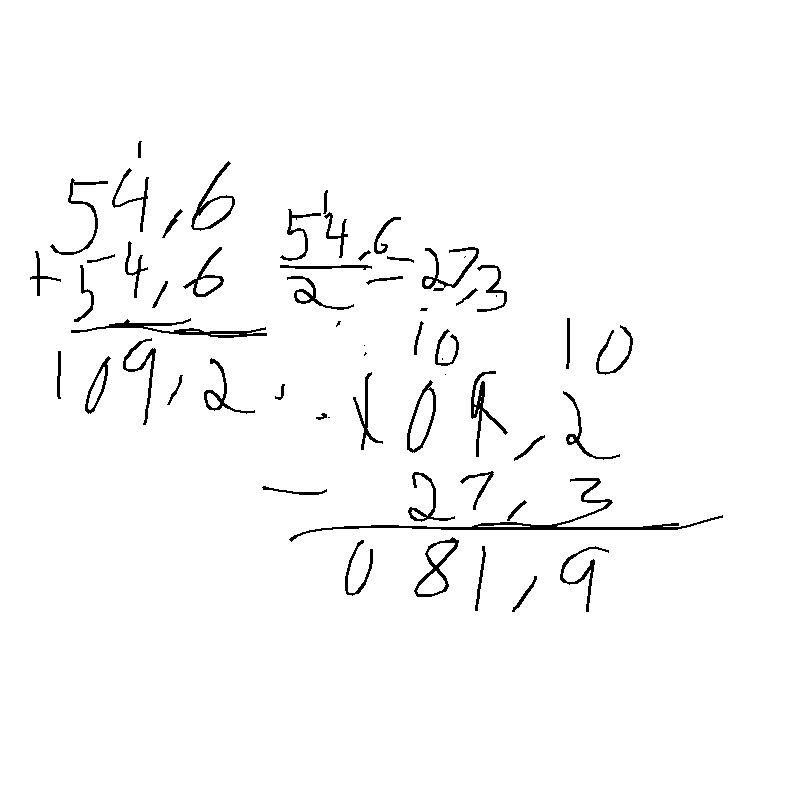 1
54,6
+54,6
109,2
1
54,6
2
= 27,3
10 10
109,2
- 27,3
081,9